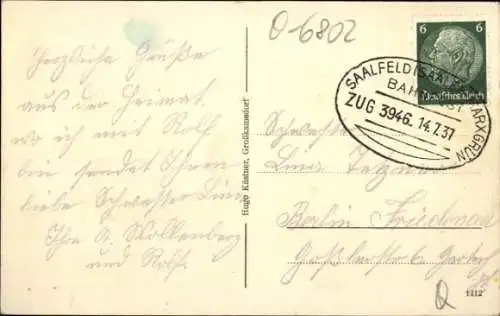 Herzliche Grüße
aus der Heimat,
wo ich mit Rolf
bin sendet Ihnen
liebe Schwester Lina
Ihre A. Mollenberg
und Rolf.
Hugo Küstner, Großkamsdorf
0-6802
6
Deutsches Reich
SAALFELD (SAALE)
MARXGRÜN
BAHNPOST
ZUG 3946 14.7.37
Schwester
Lina
Berlin Friedenau
6
1112